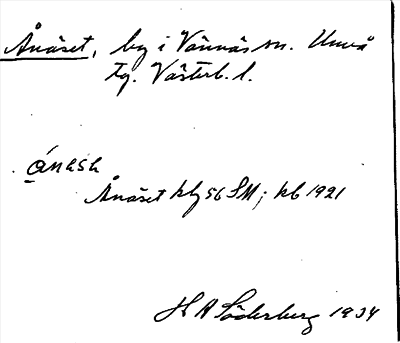 Ånäset, by i Vännäs sn. Umeå
tg. Västerb. l.
ånesə
Ånäset kbg 56 SM; kb 1921
H A Söderberg 1934